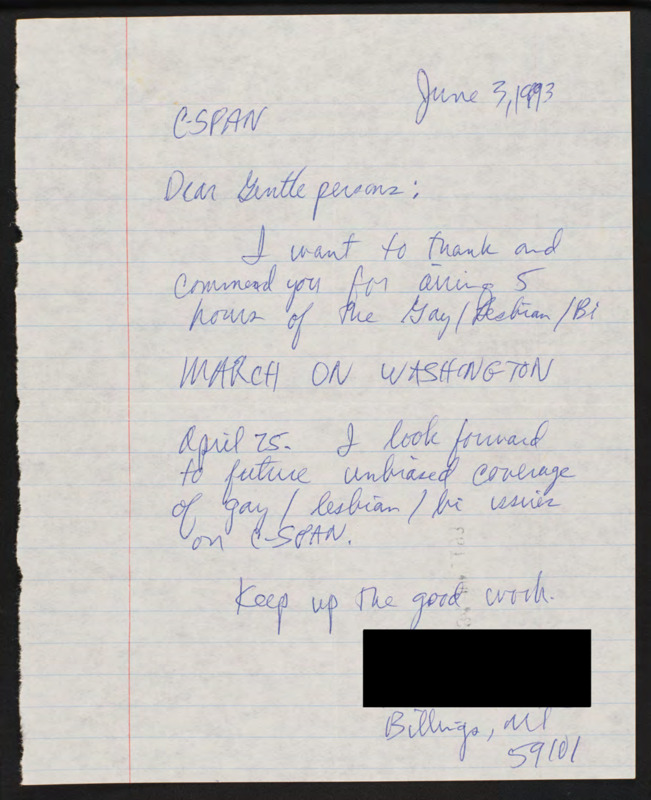 June 3, 1993
C-SPAN
Dear Gentlepersons:
I want to thank and
commend you for airing 5
hours of the Gay/Lesbian/Bi
MARCH ON WASHINGTON
April 25. I look forward
to future unbiased coverage
of gay/lesbian/bi issues
on C-SPAN.
Keep up the good work.
Billings, MT
59101